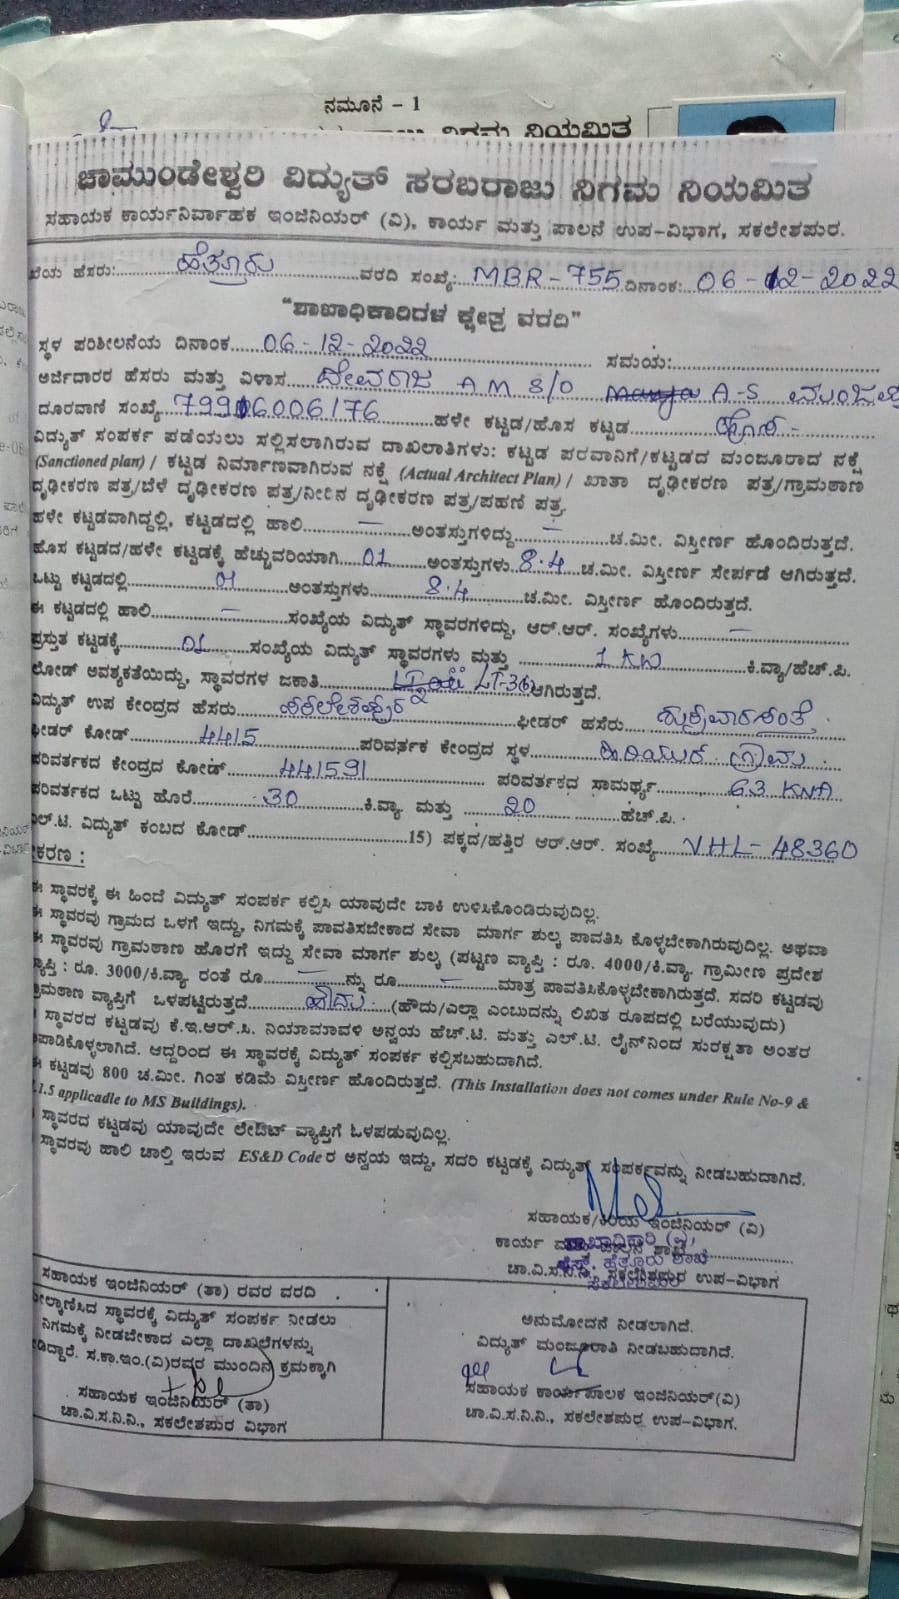 ನಮೂನೆ - 1
ನಿಗಮ ನಿಯಮಿತ
ಚಾಮುಂಡೇಶ್ವರಿ ವಿದ್ಯುತ್ ಸರಬರಾಜು ನಿಗಮ ನಿಯಮಿತ
ಸಹಾಯಕ ಕಾರ್ಯನಿರ್ವಾಹಕ ಇಂಜಿನಿಯರ್ (ವಿ), ಕಾರ್ಯ ಮತ್ತು ಪಾಲನೆ ಉಪ-ವಿಭಾಗ, ಸಕಲೇಶಪುರ.
ಹೆಸರು: ಹೆತ್ತೂರು ವರದಿ ಸಂಖ್ಯೆ: MBR-755 ದಿನಾಂಕ: 06-12-2022
"ಶಾಖಾಧಿಕಾರಿಗಳ ಕ್ಷೇತ್ರ ವರದಿ"
ಸ್ಥಳ ಪರಿಶೀಲನೆಯ ದಿನಾಂಕ 06-12-2022 ಸಮಯ:
ಅರ್ಜಿದಾರರ ಹೆಸರು ಮತ್ತು ವಿಳಾಸ ದೇವರಾಜ A M S/O A-S
ದೂರವಾಣಿ ಸಂಖ್ಯೆ ಹಳೇ ಕಟ್ಟಡ/ಹೊಸ ಕಟ್ಟಡ ಹೊಸ -
ವಿದ್ಯುತ್ ಸಂಪರ್ಕ ಪಡೆಯಲು ಸಲ್ಲಿಸಲಾಗಿರುವ ದಾಖಲಾತಿಗಳು: ಕಟ್ಟಡ ಪರವಾನಿಗೆ/ಕಟ್ಟಡದ ಮಂಜೂರಾದ ನಕ್ಷೆ
(Sanctioned plan) / ಕಟ್ಟಡ ನಿರ್ಮಾಣವಾಗಿರುವ ನಕ್ಷೆ (Actual Architect Plan) / ಖಾತಾ ದೃಢೀಕರಣ ಪತ್ರ/ಗ್ರಾಮಠಾಣ
ದೃಢೀಕರಣ ಪತ್ರ/ಬೆಳೆ ದೃಢೀಕರಣ ಪತ್ರ/ನೀರಿನ ದೃಢೀಕರಣ ಪತ್ರ/ಪಹಣಿ ಪತ್ರ.
ಹಳೇ ಕಟ್ಟಡವಾಗಿದ್ದಲ್ಲಿ, ಕಟ್ಟಡದಲ್ಲಿ ಹಾಲಿ — ಅಂತಸ್ತುಗಳಿದ್ದು — ಚ.ಮೀ. ವಿಸ್ತೀರ್ಣ ಹೊಂದಿರುತ್ತದೆ.
ಹೊಸ ಕಟ್ಟಡದ/ಹಳೇ ಕಟ್ಟಡಕ್ಕೆ ಹೆಚ್ಚುವರಿಯಾಗಿ 01 ಅಂತಸ್ತುಗಳು 8.4 ಚ.ಮೀ. ವಿಸ್ತೀರ್ಣ ಸೇರ್ಪಡೆ ಆಗಿರುತ್ತದೆ.
ಒಟ್ಟು ಕಟ್ಟಡದಲ್ಲಿ 01 ಅಂತಸ್ತುಗಳು 8.4 ಚ.ಮೀ. ವಿಸ್ತೀರ್ಣ ಹೊಂದಿರುತ್ತದೆ.
ಈ ಕಟ್ಟಡದಲ್ಲಿ ಹಾಲಿ — ಸಂಖ್ಯೆಯ ವಿದ್ಯುತ್ ಸ್ಥಾವರಗಳಿದ್ದು, ಆರ್.ಆರ್. ಸಂಖ್ಯೆಗಳು —
ಪ್ರಸ್ತುತ ಕಟ್ಟಡಕ್ಕೆ 01 ಸಂಖ್ಯೆಯ ವಿದ್ಯುತ್ ಸ್ಥಾವರಗಳು ಮತ್ತು 1 KW ಕಿ.ವ್ಯಾ/ಹೆಚ್.ಪಿ.
ಲೋಡ್ ಅವಶ್ಯಕತೆಯಿದ್ದು, ಸ್ಥಾವರಗಳ ಜಕಾತಿ ಆಗಿರುತ್ತದೆ.
ವಿದ್ಯುತ್ ಉಪ ಕೇಂದ್ರದ ಹೆಸರು ಸಕಲೇಶಪುರ ಫೀಡರ್ ಹೆಸರು ಶುಕ್ರವಾರಸಂತೆ
ಫೀಡರ್ ಕೋಡ್ 4415 ಪರಿವರ್ತಕ ಕೇಂದ್ರದ ಸ್ಥಳ ಗ್ರಾಮ
ಪರಿವರ್ತಕದ ಕೇಂದ್ರದ ಕೋಡ್ 441591 ಪರಿವರ್ತಕದ ಸಾಮರ್ಥ್ಯ 63 KVA
ಪರಿವರ್ತಕದ ಒಟ್ಟು ಹೊರೆ 30 ಕಿ.ವ್ಯಾ ಮತ್ತು 20 ಹೆಚ್.ಪಿ.
ಎಲ್.ಟಿ. ವಿದ್ಯುತ್ ಕಂಬದ ಕೋಡ್ 15) ಪಕ್ಕದ/ಹತ್ತಿರ ಆರ್.ಆರ್. ಸಂಖ್ಯೆ VHL-48360
ಕರಣ :
ಈ ಸ್ಥಾವರಕ್ಕೆ ಈ ಹಿಂದೆ ವಿದ್ಯುತ್ ಸಂಪರ್ಕ ಕಲ್ಪಿಸಿ ಯಾವುದೇ ಬಾಕಿ ಉಳಿಸಿಕೊಂಡಿರುವುದಿಲ್ಲ.
ಈ ಸ್ಥಾವರವು ಗ್ರಾಮದ ಒಳಗೆ ಇದ್ದು, ನಿಗಮಕ್ಕೆ ಪಾವತಿಸಬೇಕಾದ ಸೇವಾ ಮಾರ್ಗ ಶುಲ್ಕ ಪಾವತಿಸಿ ಕೊಳ್ಳಬೇಕಾಗಿರುವುದಿಲ್ಲ. ಅಥವಾ
ಈ ಸ್ಥಾವರವು ಗ್ರಾಮಠಾಣ ಹೊರಗೆ ಇದ್ದು ಸೇವಾ ಮಾರ್ಗ ಶುಲ್ಕ (ಪಟ್ಟಣ ವ್ಯಾಪ್ತಿ : ರೂ. 4000/ಕಿ.ವ್ಯಾ. ಗ್ರಾಮೀಣ ಪ್ರದೇಶ
ವ್ಯಾಪ್ತಿ : ರೂ. 3000/ಕಿ.ವ್ಯಾ ರಂತೆ ರೂ — ನ್ನು ರೂ — ಮಾತ್ರ ಪಾವತಿಸಿಕೊಳ್ಳಬೇಕಾಗಿರುತ್ತದೆ. ಸದರಿ ಕಟ್ಟಡವು
ಗ್ರಾಮಠಾಣ ವ್ಯಾಪ್ತಿಗೆ ಒಳಪಟ್ಟಿರುತ್ತದೆ ಹೌದು (ಹೌದು/ಎಲ್ಲಾ ಎಂಬುದನ್ನು ಲಿಖಿತ ರೂಪದಲ್ಲಿ ಬರೆಯುವುದು)
ಸ್ಥಾವರದ ಕಟ್ಟಡವು ಕೆ.ಇ.ಆರ್.ಸಿ. ನಿಯಾಮಾವಳಿ ಅನ್ವಯ ಹೆಚ್.ಟಿ. ಮತ್ತು ಎಲ್.ಟಿ. ಲೈನ್‌ನಿಂದ ಸುರಕ್ಷತಾ ಅಂತರ
ಪಾಡಿಕೊಳ್ಳಲಾಗಿದೆ. ಆದ್ದರಿಂದ ಈ ಸ್ಥಾವರಕ್ಕೆ ವಿದ್ಯುತ್ ಸಂಪರ್ಕ ಕಲ್ಪಿಸಬಹುದಾಗಿದೆ.
ಈ ಕಟ್ಟಡವು 800 ಚ.ಮೀ. ಗಿಂತ ಕಡಿಮೆ ವಿಸ್ತೀರ್ಣ ಹೊಂದಿರುತ್ತದೆ. (This Installation does not comes under Rule No-9 &
.1.5 applicadle to MS Buildings).
ಸ್ಥಾವರದ ಕಟ್ಟಡವು ಯಾವುದೇ ಲೇಔಟ್ ವ್ಯಾಪ್ತಿಗೆ ಓಳಪಡುವುದಿಲ್ಲ.
ಸ್ಥಾವರವು ಹಾಲಿ ಚಾಲ್ತಿ ಇರುವ ES&D Code ರ ಅನ್ವಯ ಇದ್ದು, ಸದರಿ ಕಟ್ಟಡಕ್ಕೆ ವಿದ್ಯುತ್ ಸಂಪರ್ಕವನ್ನು ನೀಡಬಹುದಾಗಿದೆ.
ಸಹಾಯಕ/ಕಿರಿಯ ಇಂಜಿನಿಯರ್ (ವಿ)
ಕಾರ್ಯ ಮತ್ತು ಪಾಲನೆ ಶಾಖೆ
ಚಾ.ವಿ.ಸ.ನಿ.ನಿ., ಸಕಲೇಶಪುರ ಉಪ-ವಿಭಾಗ
ಶಾಖಾಧಿಕಾರಿ (ವಿ)
ಹೆತ್ತೂರು ಶಾಖೆ
ಸಕಲೇಶಪುರ
ಸಹಾಯಕ ಇಂಜಿನಿಯರ್ (ತಾ) ರವರ ವರದಿ
ಮೇಲ್ಕಾಣಿಸಿದ ಸ್ಥಾವರಕ್ಕೆ ವಿದ್ಯುತ್ ಸಂಪರ್ಕ ನೀಡಲು
ನಿಗಮಕ್ಕೆ ನೀಡಬೇಕಾದ ಎಲ್ಲಾ ದಾಖಲೆಗಳನ್ನು
ನೀಡಿದ್ದಾರೆ. ಸ.ಕಾ.ಇಂ.(ವಿ)ರವರ ಮುಂದಿನ ಕ್ರಮಕ್ಕಾಗಿ
ಸಹಾಯಕ ಇಂಜಿನಿಯರ್ (ತಾ)
ಚಾ.ವಿ.ಸ.ನಿ.ನಿ., ಸಕಲೇಶಪುರ ವಿಭಾಗ
ಅನುಮೋದನೆ ನೀಡಲಾಗಿದೆ.
ವಿದ್ಯುತ್ ಮಂಜೂರಾತಿ ನೀಡಬಹುದಾಗಿದೆ.
ಸಹಾಯಕ ಕಾರ್ಯಪಾಲಕ ಇಂಜಿನಿಯರ್(ವಿ)
ಚಾ.ವಿ.ಸ.ನಿ.ನಿ., ಸಕಲೇಶಪುರ ಉಪ-ವಿಭಾಗ.